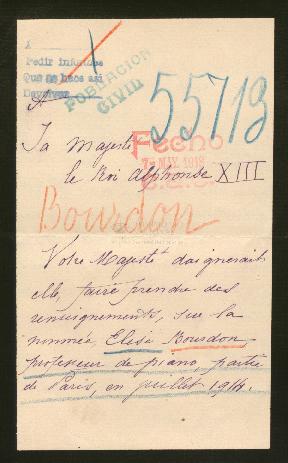 Pedir informes
Que se hace así
POBLACION
CIVIL
55713
Fecho
MAY. 1918
Sa Majesté
le Roi Alphonse XIII
Bourdon
Votre Majesté daignerait
elle, faire prendre des
renseignements, sur la
nommée, Elisa Bourdon,
professeur de piano, partie
de Paris, en juillet 1914.